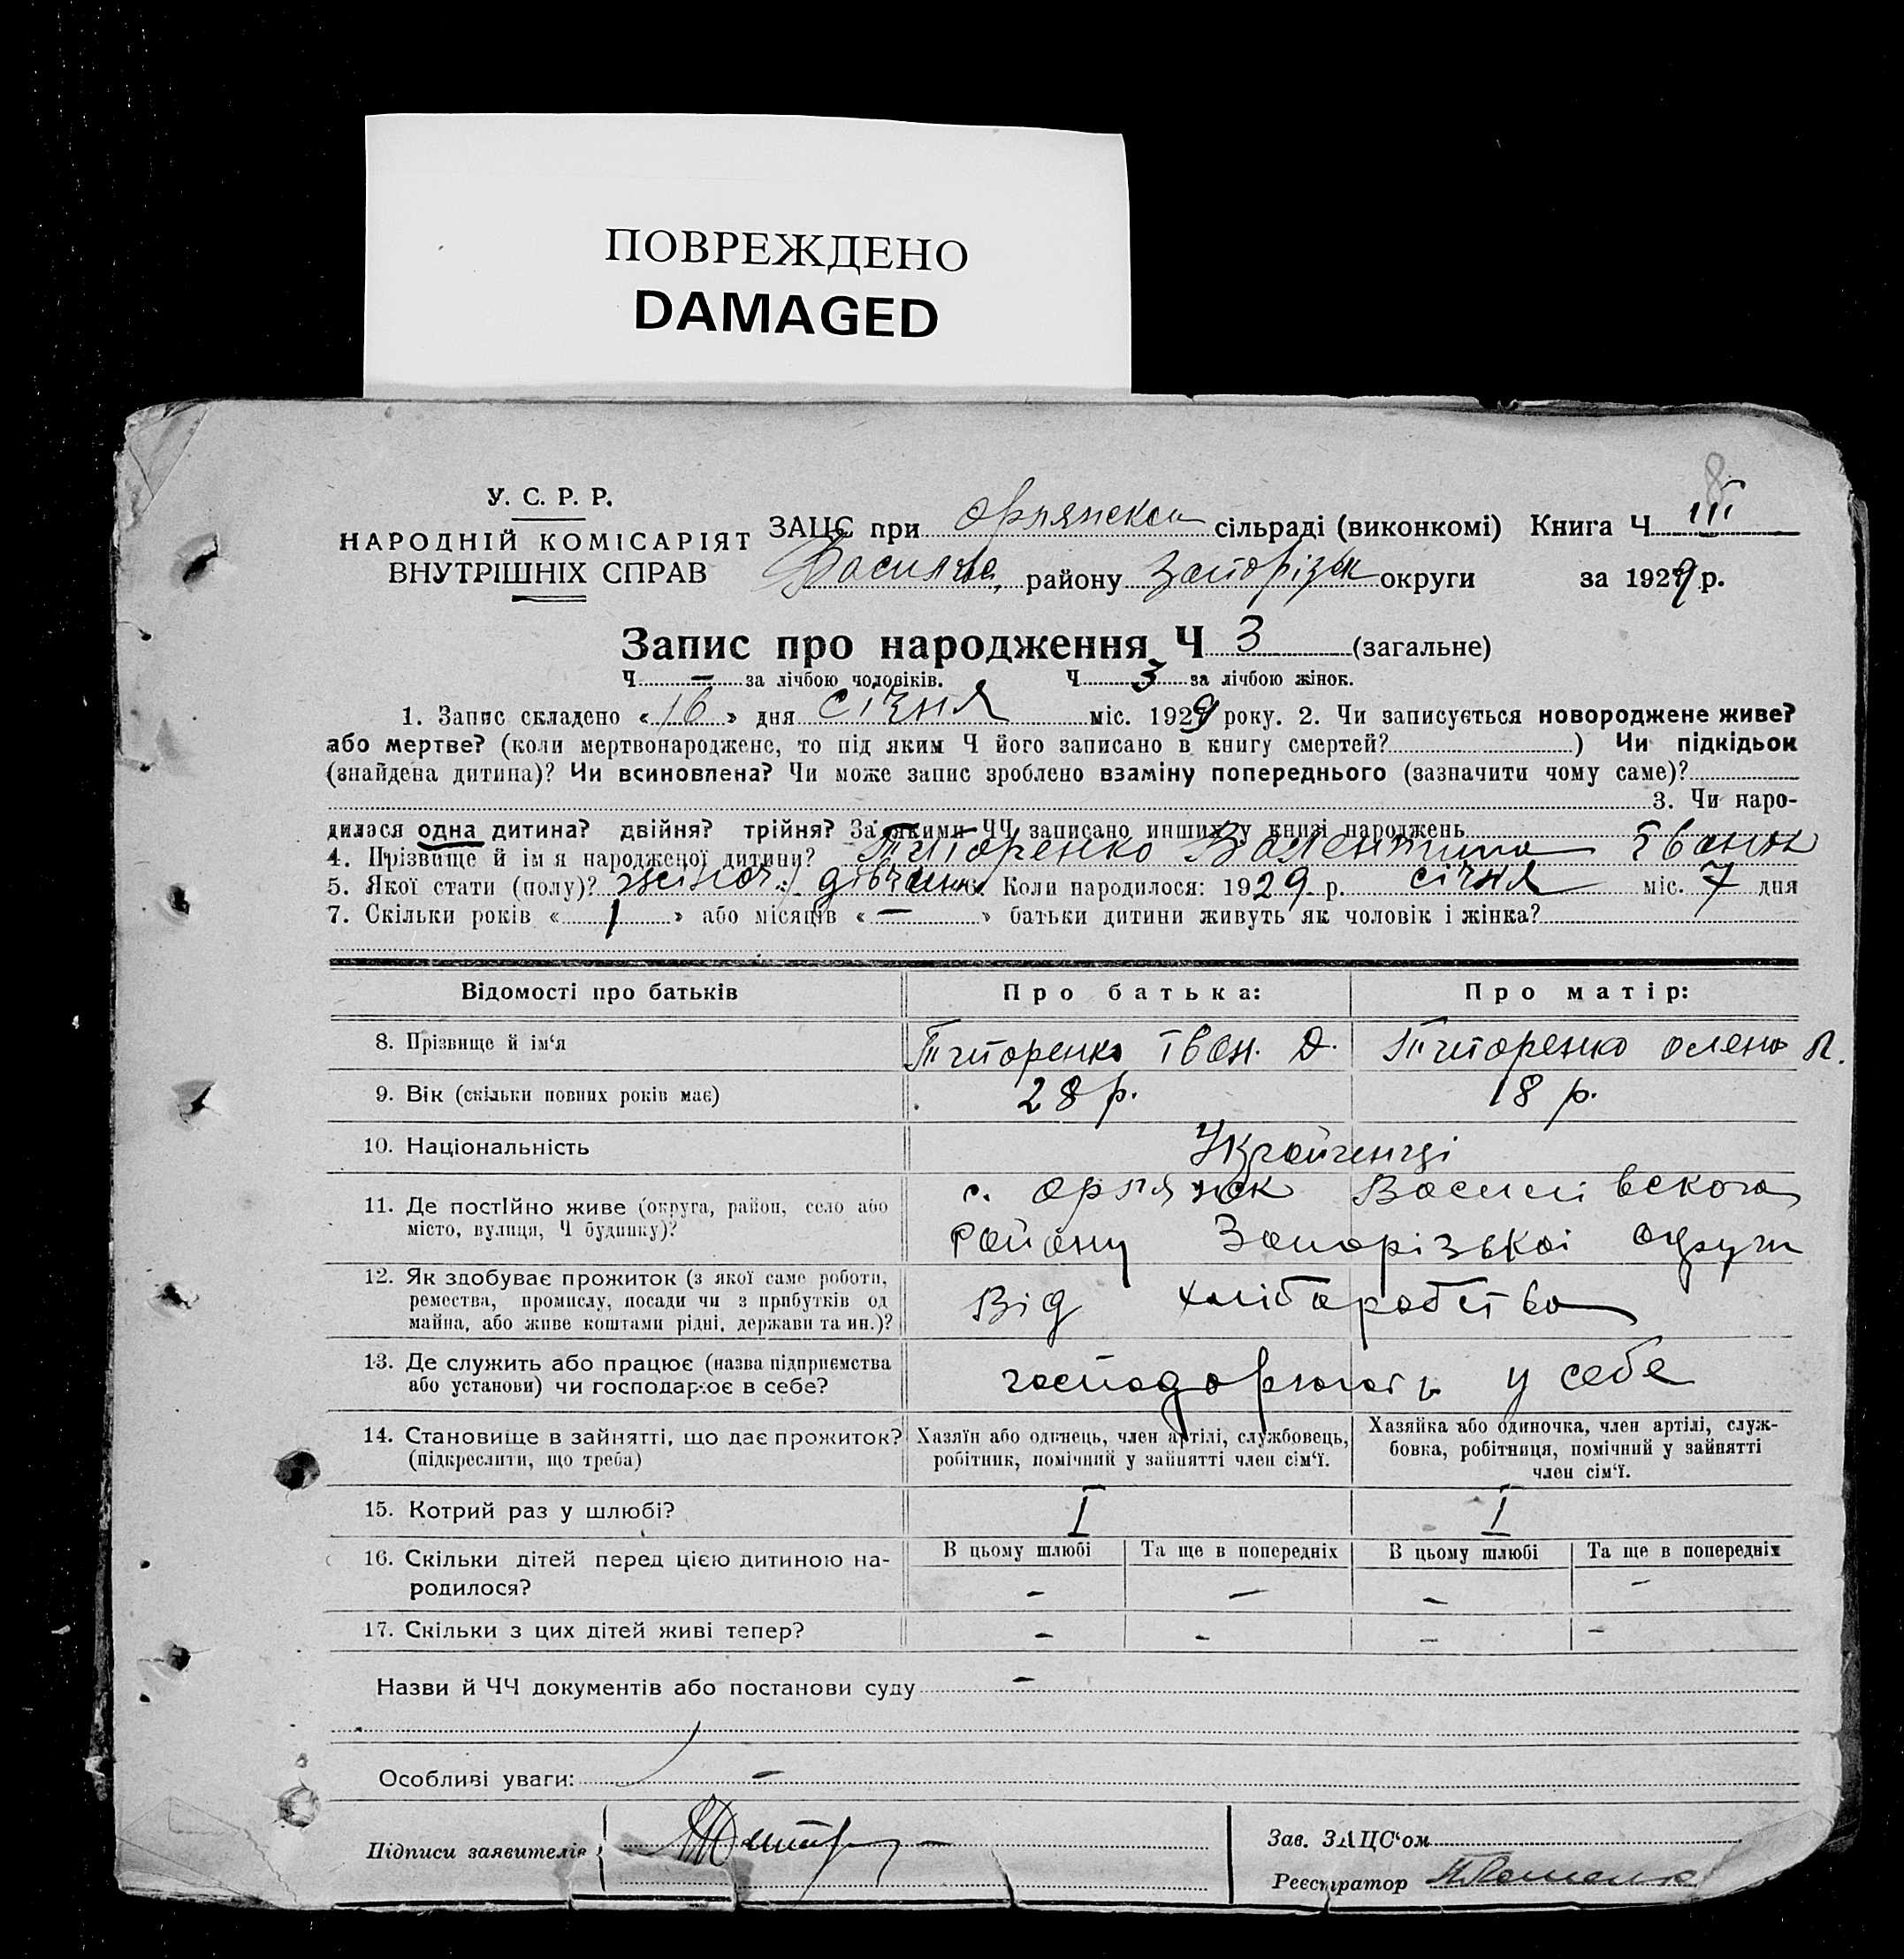 ПОВРЕЖДЕНО
DAMAGED
8
У. С. Р. Р.
НАРОДНІЙ КОМІСАРІЯТ
ВНУТРІШНІХ СПРАВ
ЗАЦС при Орлянской сільраді (виконкомі) Книга Ч III
району Запорізьк округи за 1929 р.
Запис про народження Ч 3 (загальне)
Ч — за лічбою чоловіків. Ч 3 за лічбою жінок.
1. Запис складено «16» дня січня міс. 1929 року. 2. Чи записується новороджене живе?
або мертве? (коли мертвонароджене, то під яким Ч його записано в книгу смертей? ) Чи підкідьок
(знайдена дитина)? Чи всиновлена? Чи може запис зроблено взаміну попереднього (зазначити чому саме)?
3. Чи наро-
дилася одна дитина? двійня? трійня? За якими ЧЧ записано инших у книзі народжень
4. Прізвище й ім'я народженої дитини? Титоренко Валентина Іванн
5. Якої стати (полу)? жіноч. дівчинк 6. Коли народилося: 1929 р. січня міс. 7 дня
7. Скільки років «1» або місяців «—» батьки дитини живуть як чоловік і жінка?
Відомості про батьків Про батька: Про матір:
8. Прізвище й ім'я Титоренко Іван. Д. Титоренко Олена П.
9. Вік (скільки повних років має) 28 р. 18 р.
10. Національність Українці
11. Де постійно живе (округа, район, село або
місто, вулиця, Ч будинку)?
с. Орлянск Василівского
району Запорізької округи
12. Як здобуває прожиток (з якої саме роботи,
ремества, промислу, посади чи з прибутків од
майна, або живе коштами рідні, держави та ин.)?
Від хліборобства
13. Де служить або працює (назва підприємства
або установи) чи господарює в себе?
господарюють у себе
14. Становище в зайнятті, що дає прожиток?
(підкреслити, що треба)
Хазяїн або одинець, член артілі, службовець,
робітник, помічний у зайнятті член сім'ї.
Хазяйка або одиночка, член артілі, служ-
бовка, робітниця, помічний у зайнятті
член сім'ї.
15. Котрий раз у шлюбі? I I
16. Скільки дітей перед цією дитиною на-
родилося?
В цьому шлюбі Та ще в попередніх В цьому шлюбі Та ще в попередніх
— — — —
17. Скільки з цих дітей живі тепер? — — — —
Назви й ЧЧ документів або постанови суду —
Особливі уваги: —
Підписи заявителів
Зав. ЗАЦС'ом
Реєстратор